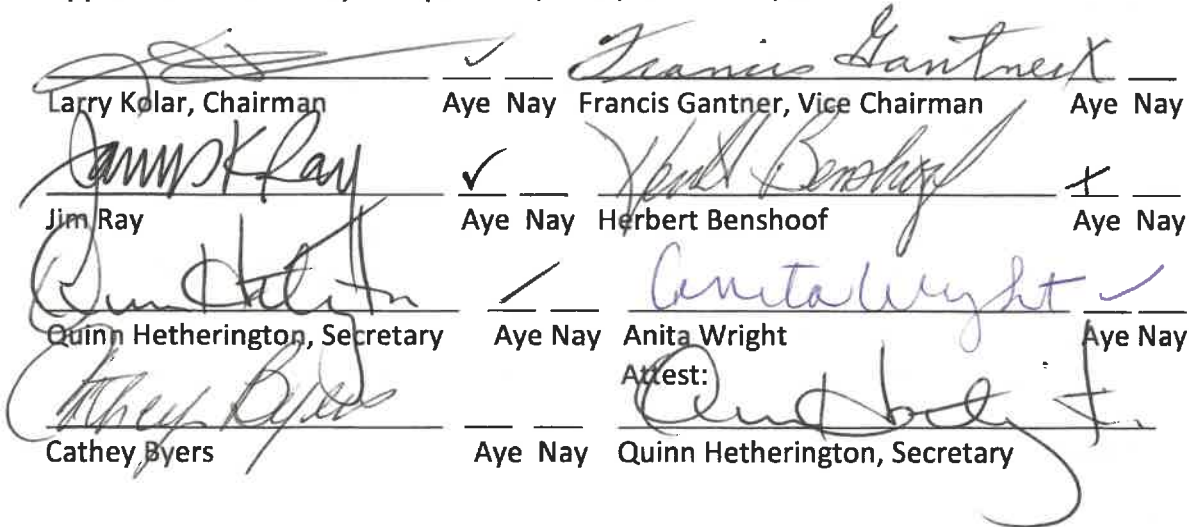 Francis Gantner X
Larry Kolar, Chairman Aye Nay Francis Gantner, Vice Chairman Aye Nay
James K Ray ✓ Benshoof
Jim Ray Aye Nay Herbert Benshoof Aye Nay
Anita Wright ✓
Quinn Hetherington, Secretary Aye Nay Anita Wright Aye Nay
Cathey Byers Attest:
Cathey Byers Aye Nay Quinn Hetherington, Secretary